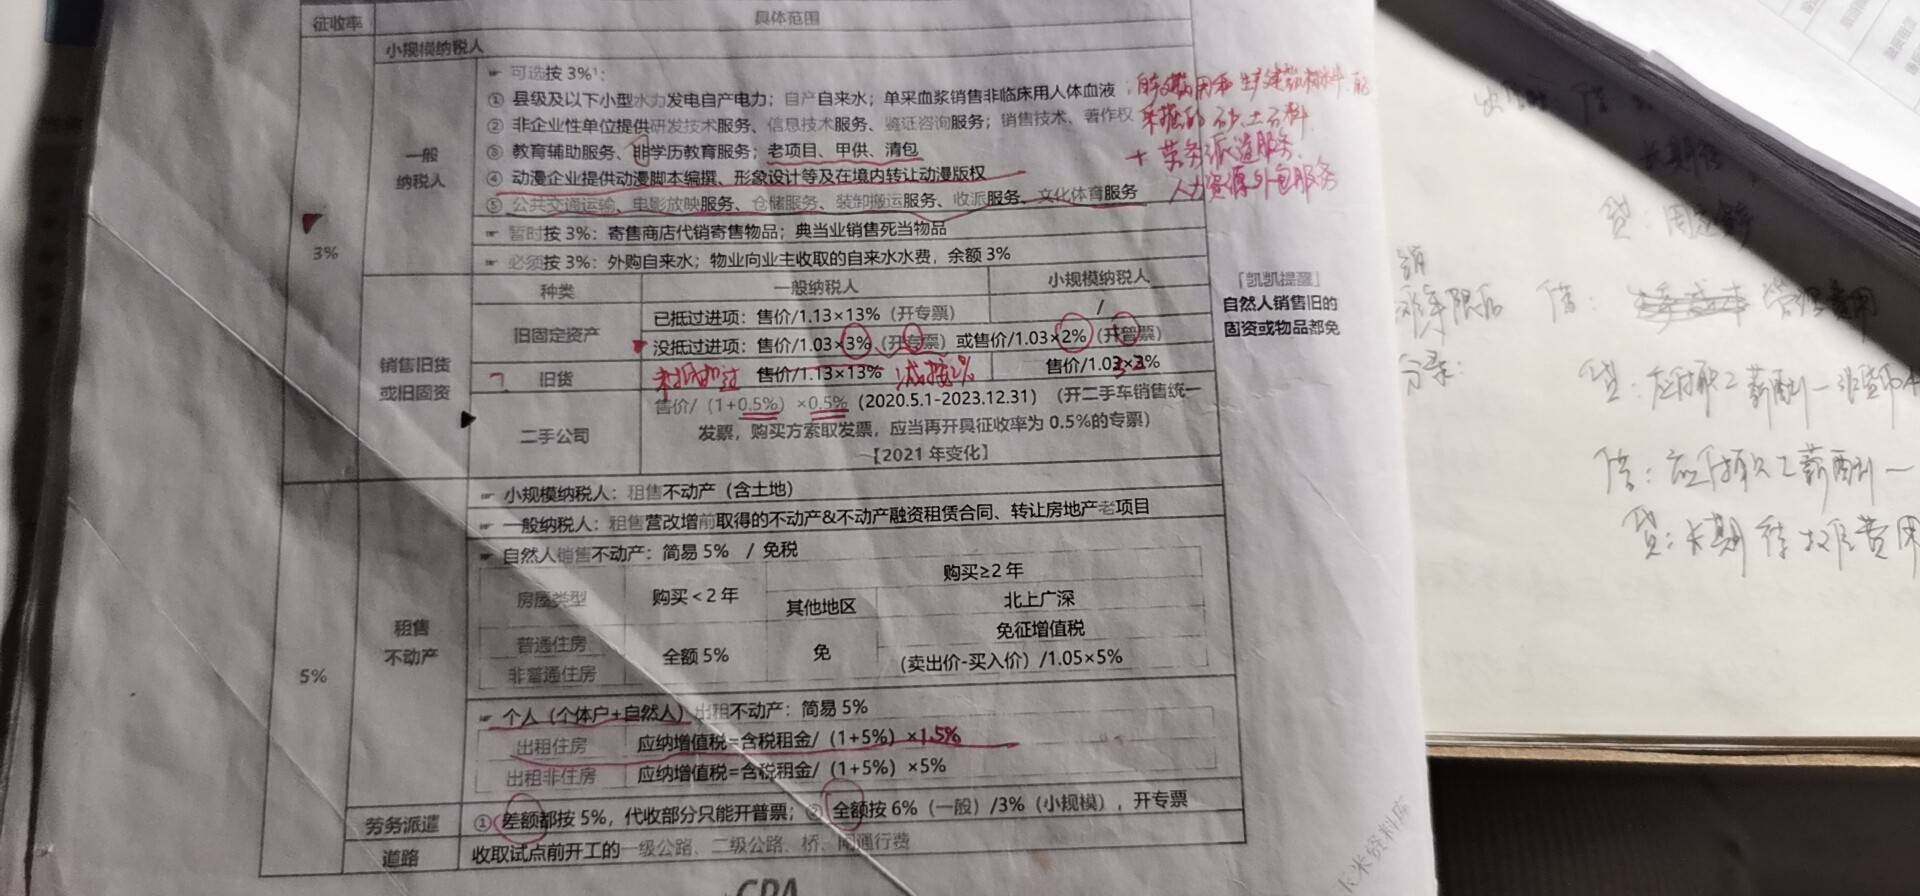 征收率 具体范围
小规模纳税人
☞ 可选按 3%¹:
① 县级及以下小型水力发电自产电力；自产自来水；单采血浆销售非临床用人体血液
② 非企业性单位提供研发技术服务、信息技术服务、鉴证咨询服务；销售技术、著作权
③ 教育辅助服务、非学历教育服务；老项目、甲供、清包
④ 动漫企业提供动漫脚本编撰、形象设计等及在境内转让动漫版权
⑤ 公共交通运输、电影放映服务、仓储服务、装卸搬运服务、收派服务、文化体育服务
采掘的砂、土、石料
+ 劳务派遣服务、
人力资源外包服务
一般
纳税人
☞ 暂时按 3%：寄售商店代销寄售物品；典当业销售死当物品
☞ 必须按 3%：外购自来水；物业向业主收取的自来水水费，余额 3%
3%
种类 一般纳税人 小规模纳税人
旧固定资产 已抵过进项：售价/1.13×13%（开专票） /
没抵过进项：售价/1.03×3%（开专票）或售价/1.03×2%（开普票）
销售旧货
或旧固资
旧货 未抵扣过 售价/1.13×13% 减按2% 售价/1.03×3%
二手公司 售价/（1+0.5%）×0.5%（2020.5.1-2023.12.31）（开二手车销售统一
发票，购买方索取发票，应当再开具征收率为 0.5%的专票）
【2021 年变化】
「凯凯提醒」
自然人销售旧的
固资或物品都免
5%
租售
不动产
☞ 小规模纳税人：租售不动产（含土地）
☞ 一般纳税人：租售营改增前取得的不动产&不动产融资租赁合同、转让房地产老项目
☞ 自然人销售不动产：简易 5% / 免税
房屋类型 购买＜2 年 购买≥2 年
其他地区 北上广深
普通住房 全额 5% 免 免征增值税
非普通住房 （卖出价-买入价）/1.05×5%
☞ 个人（个体户+自然人）出租不动产：简易 5%
出租住房 应纳增值税=含税租金/（1+5%）×1.5%
出租非住房 应纳增值税=含税租金/（1+5%）×5%
劳务派遣 ① 差额都按 5%，代收部分只能开普票；② 全额按 6%（一般）/3%（小规模），开专票
道路 收取试点前开工的一级公路、二级公路、桥、闸通行费
CPA
米资料库
借：
贷：
借： 管理费用
贷：应付职工薪酬—非货币
借：应付职工薪酬—
贷：长期待摊费用